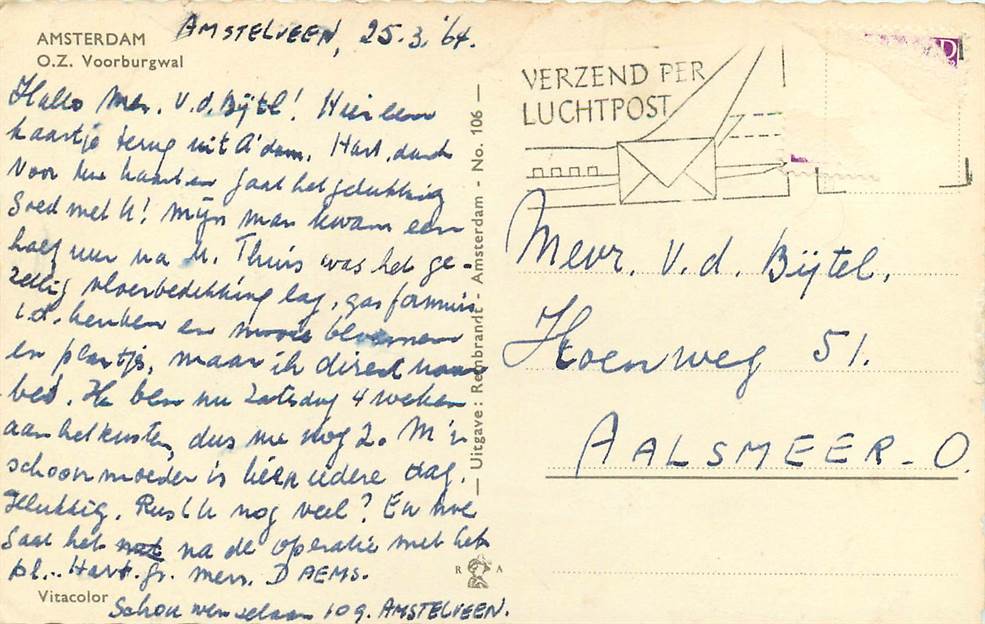 AMSTERDAM
O.Z. Voorburgwal
AMSTELVEEN, 25.3.'64.
Hallo Mevr. V.d. Bijtel! Hier een
kaartje terug uit A'dam. Hart. dank
voor kaarten gaat het gelukkig
goed met U! Mijn man kwam een
half uur na U. Thuis was het ge-
zellig vloerbedekking lag, gasfornuis
i.d. keuken en mooie bloemen
en plantjes, maar ik direct naar
bed. Ik ben nu Zaterdag 4 weken
aan het rusten, dus nog 2. M'n
schoonmoeder is hier iedere dag.
Gelukkig. Rust U nog veel? En hoe
gaat het na de operatie met het
Hart. gr. mevr. DAEMS.
109. AMSTELVEEN.
Vitacolor
Uitgave: Rembrandt - Amsterdam - No. 106
R A
VERZEND PER
LUCHTPOST
Mevr. V.d. Bijtel,
Hoenweg 51.
AALSMEER-O.